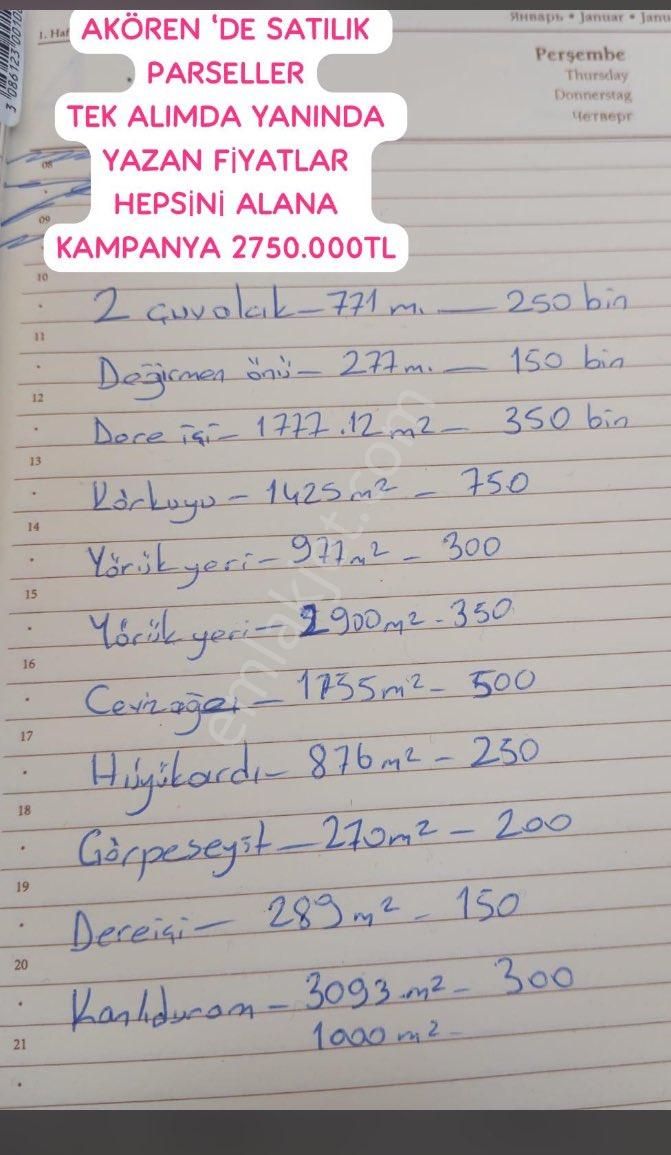 3 086123 0010
1. Haf
Январь • Januar • Janu
Perşembe
Thursday
Donnerstag
Четверг
AKÖREN 'DE SATILIK
PARSELLER
TEK ALIMDA YANINDA
YAZAN FİYATLAR
HEPSİNİ ALANA
KAMPANYA 2750.000TL
08
09
10
2 Guvolcık - 771 m. — 250 bin
11
Değirmen önü - 277 m. — 150 bin
12
Dere içi - 1777.12 m2 - 350 bin
13
Körkuyu - 1425 m2 - 750
14
Yörük yeri - 977 m2 - 300
15
Yörük yeri - 2900 m2 - 350
16
- 1755 m2 - 500
17
Hüyükardı - 876 m2 - 250
18
Görpeseyit - 270 m2 - 200
19
Dereiçi - 289 m2 - 150
20
Kanlıduran - 3093 m2 - 300
21
1000 m2 -
emlakjet.com